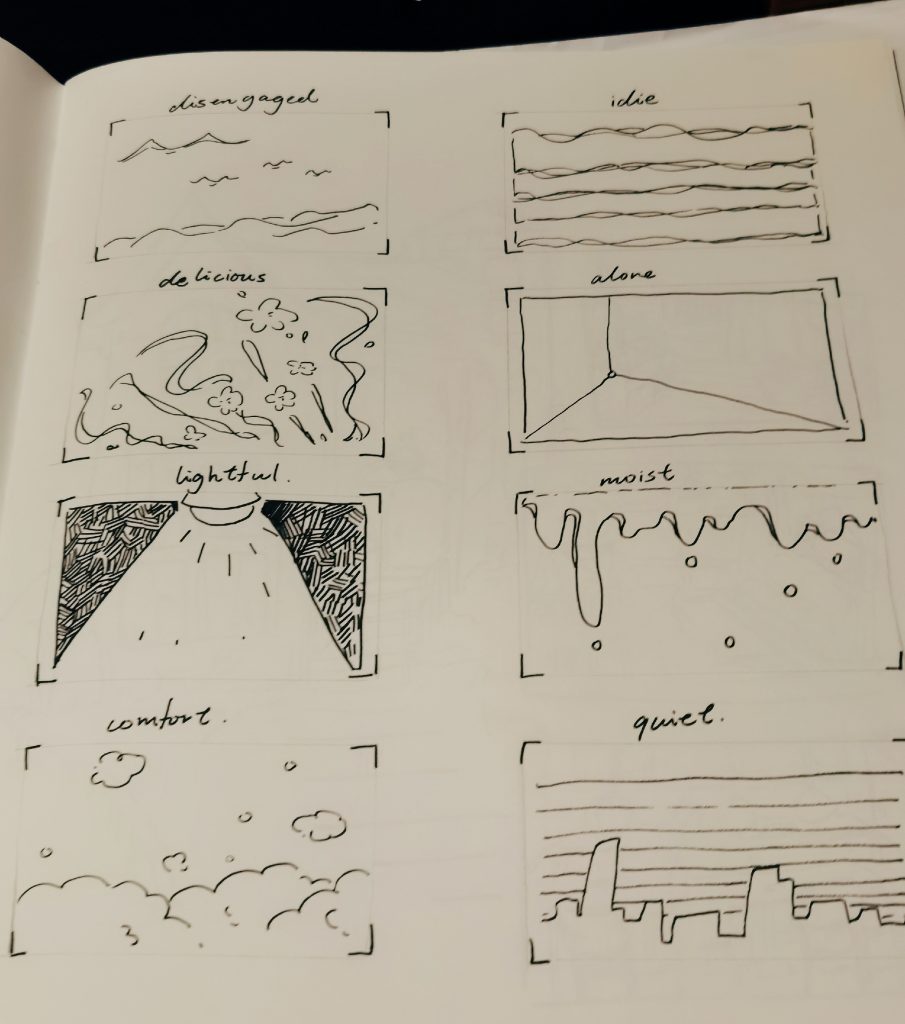 disengaged
idie
delicious
alone
lightful.
moist
comfort.
quiet.